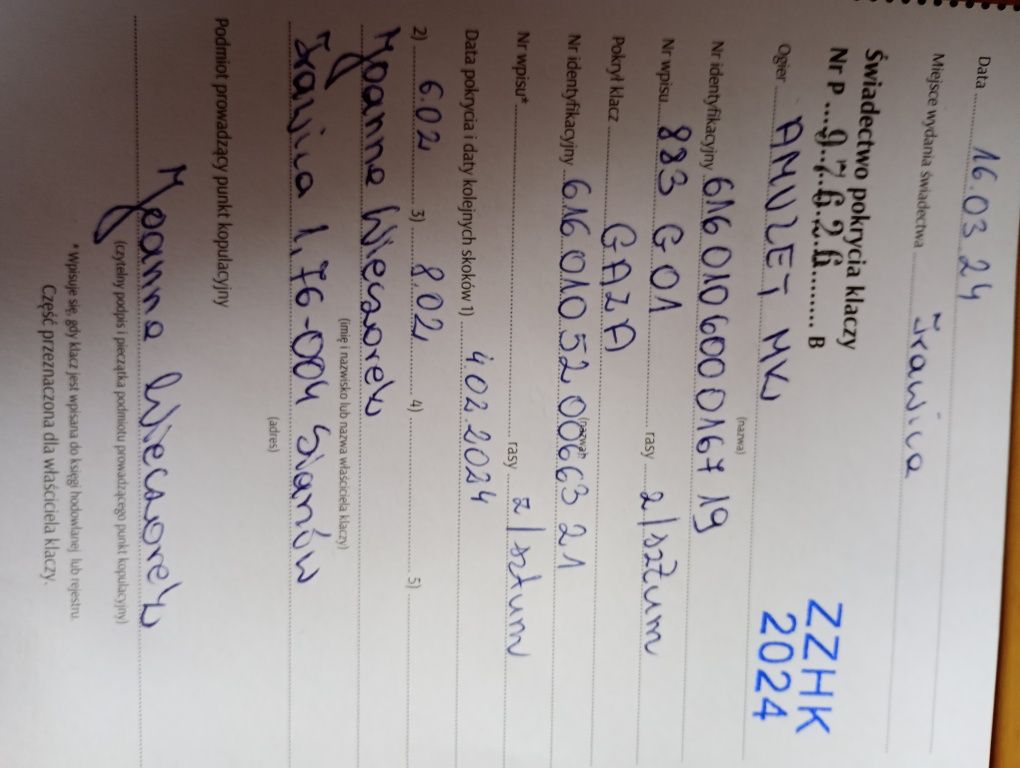 Data 16.03.24
Miejsce wydania świadectwa Iławica
Świadectwo pokrycia klaczy
Nr P 97626 B
ZZHK
2024
Ogier AMULET MKJ
(nazwa)
Nr identyfikacyjny 616010600016719
Nr wpisu 883 G 01 rasy z/sztum
Pokrył klacz GAZA
(nazwa)
Nr identyfikacyjny 616 010 52 00663 21
Nr wpisu* rasy z/sztum
Data pokrycia i daty kolejnych skoków 1) 4.02.2024
2) 6.02 3) 8.02 4) 5)
Joanna Wieczorek
(imię i nazwisko lub nazwa właściciela klaczy)
1, 76-004 Sianów
(adres)
Podmiot prowadzący punkt kopulacyjny
Joanna Wieczorek
(czytelny podpis i pieczątka podmiotu prowadzącego punkt kopulacyjny)
* Wpisuje się, gdy klacz jest wpisana do księgi hodowlanej lub rejestru.
Część przeznaczona dla właściciela klaczy.